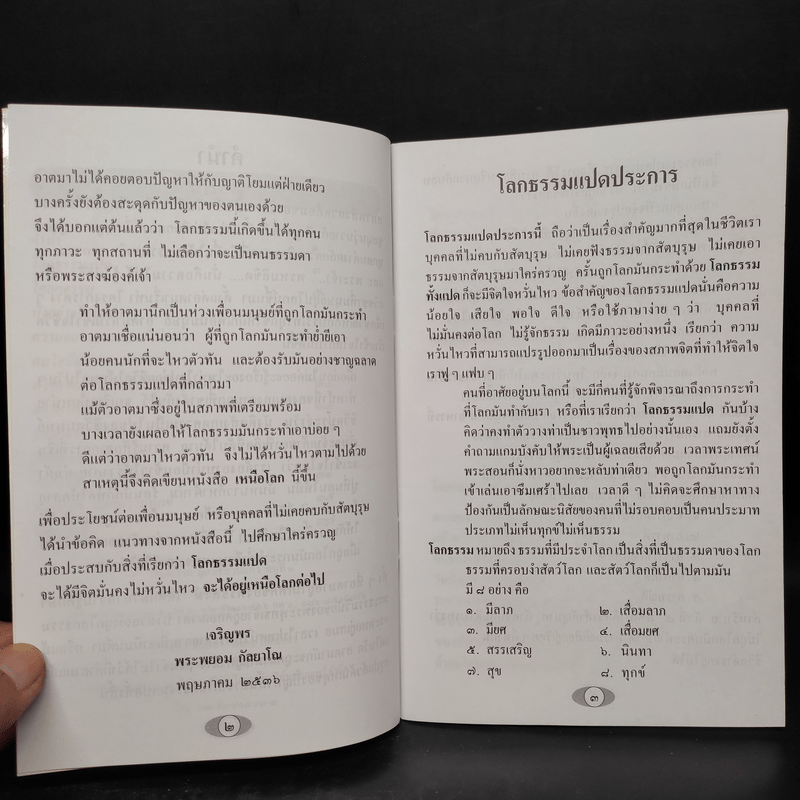 อาตมาไม่ได้คอยตอบปัญหาให้กับญาติโยมแต่ฝ่ายเดียว
บางครั้งยังต้องสะดุดกับปัญหาของตนเองด้วย
จึงได้บอกแต่ต้นแล้วว่า โลกธรรมนี้เกิดขึ้นได้ทุกคน
ทุกภาวะ ทุกสถานที่ ไม่เลือกว่าจะเป็นคนธรรมดา
หรือพระสงฆ์องค์เจ้า
ทำให้อาตมานึกเป็นห่วงเพื่อนมนุษย์ที่ถูกโลกมันกระทำ
อาตมาเชื่อแน่นอนว่า ผู้ที่ถูกโลกมันกระทำย่ำยีเอา
น้อยคนนักที่จะไหวตัวทัน และต้องรับมันอย่างชาญฉลาด
ต่อโลกธรรมแปดที่กล่าวมา
แม้ตัวอาตมาซึ่งอยู่ในสภาพที่เตรียมพร้อม
บางเวลายังเผลอให้โลกธรรมมันกระทำเอาบ่อย ๆ
ดีแต่ว่าอาตมาไหวตัวทัน จึงไม่ได้หวั่นไหวตามไปด้วย
สาเหตุนี้จึงคิดเขียนหนังสือ เหนือโลก นี้ขึ้น
เพื่อประโยชน์ต่อเพื่อนมนุษย์ หรือบุคคลที่ไม่เคยคบกับสัตบุรุษ
ได้นำข้อคิด แนวทางจากหนังสือนี้ ไปศึกษาใคร่ครวญ
เมื่อประสบกับสิ่งที่เรียกว่า โลกธรรมแปด
จะได้มีจิตมั่นคงไม่หวั่นไหว จะได้อยู่เหนือโลกต่อไป
เจริญพร
พระพยอม กัลยาโณ
พฤษภาคม ๒๕๓๖
๒
โลกธรรมแปดประการ
โลกธรรมแปดประการนี้ ถือว่าเป็นเรื่องสำคัญมากที่สุดในชีวิตเรา
บุคคลที่ไม่คบกับสัตบุรุษ ไม่เคยฟังธรรมจากสัตบุรุษ ไม่เคยเอา
ธรรมจากสัตบุรุษมาใคร่ครวญ ครั้นถูกโลกมันกระทำด้วย โลกธรรม
ทั้งแปด ก็จะมีจิตใจหวั่นไหว ข้อสำคัญของโลกธรรมแปดนั่นคือความ
น้อยใจ เสียใจ พอใจ ดีใจ หรือใช้ภาษาง่าย ๆ ว่า บุคคลที่
ไม่มั่นคงต่อโลก ไม่รู้จักธรรม เกิดมีภาวะอย่างหนึ่ง เรียกว่า ความ
หวั่นไหวที่สามารถแปรรูปออกมาเป็นเรื่องของสภาพจิตที่ทำให้จิตใจ
เราฟู ๆ แฟบ ๆ
คนที่อาศัยอยู่บนโลกนี้ จะมีกี่คนที่รู้จักพิจารณาถึงการกระทำ
ที่โลกมันทำกับเรา หรือที่เราเรียกว่า โลกธรรมแปด กันบ้าง
คิดว่าคงทำตัววางท่าเป็นชาวพุทธไปอย่างนั้นเอง แถมยังตั้ง
คำถามแกมบังคับให้พระเป็นผู้เฉลยเสียด้วย เวลาพระเทศน์
พระสอนก็นั่งหาวอยากจะหลับท่าเดียว พอถูกโลกมันกระทำ
เข้าเล่นเอาซึมเศร้าไปเลย เวลาดี ๆ ไม่คิดจะศึกษาหาทาง
ป้องกันเป็นลักษณะนิสัยของคนที่ไม่รอบคอบเป็นคนประมาท
ประเภทไม่เห็นทุกข์ไม่เห็นธรรม
โลกธรรม หมายถึง ธรรมที่มีประจำโลก เป็นสิ่งที่เป็นธรรมดาของโลก
ธรรมที่ครอบงำสัตว์โลก และสัตว์โลกก็เป็นไปตามมัน
มี ๘ อย่าง คือ
๑. มีลาภ ๒. เสื่อมลาภ
๓. มียศ ๔. เสื่อมยศ
๕. สรรเสริญ ๖. นินทา
๗. สุข ๘. ทุกข์
๓